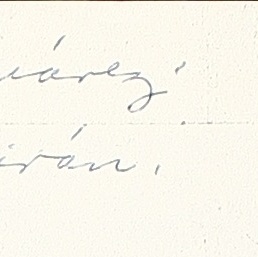 uárez
irán.